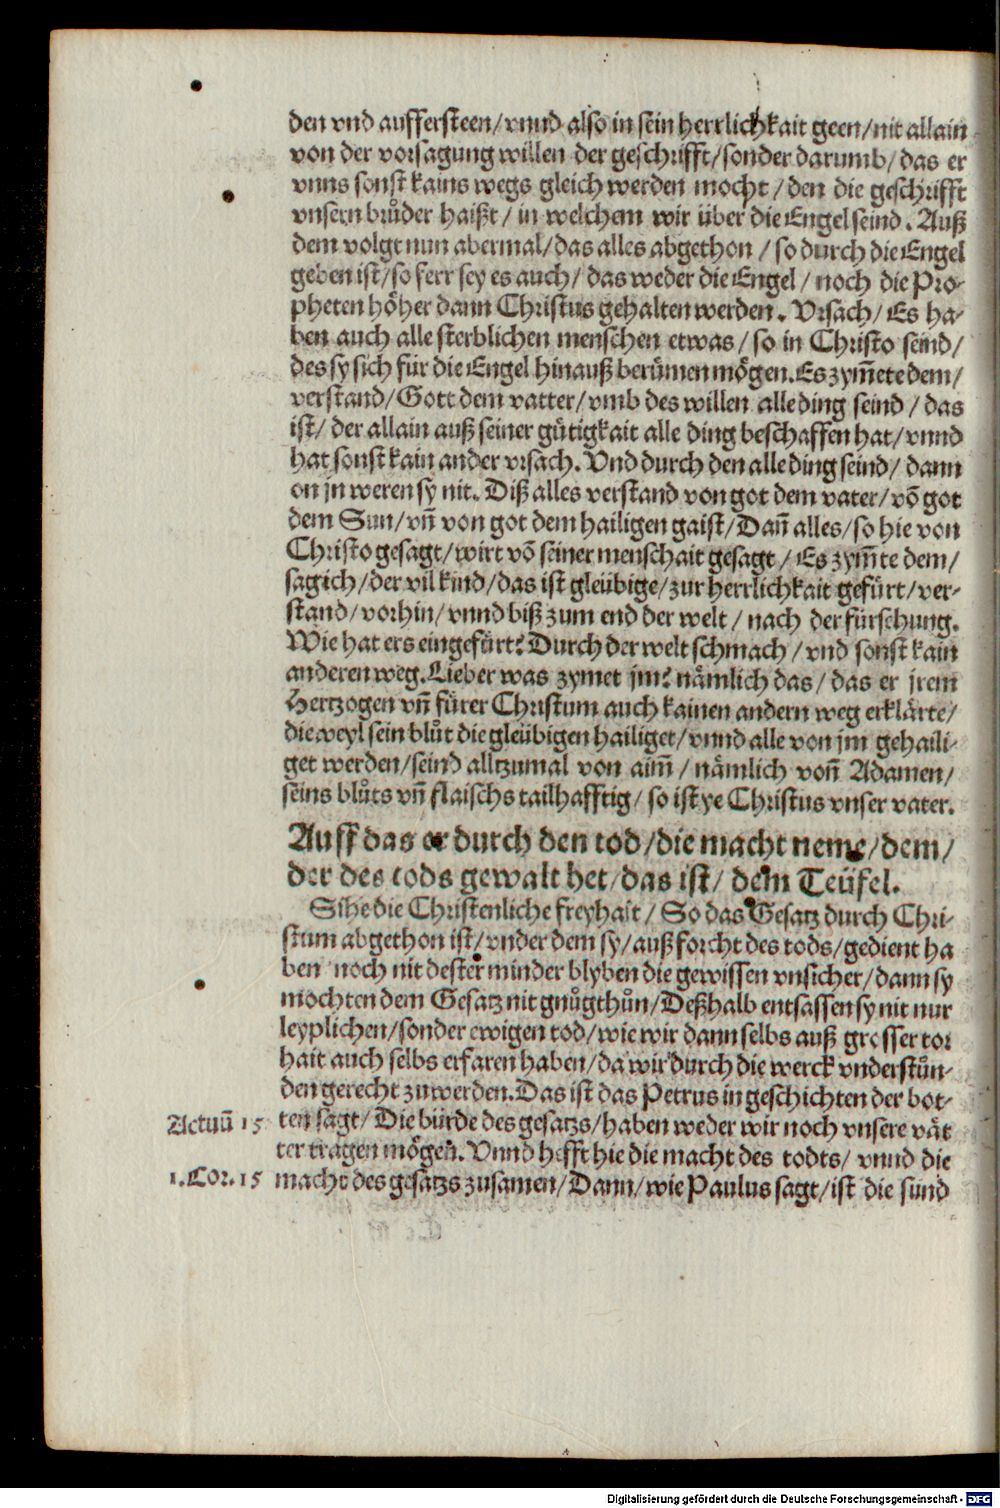 den vnd aufferſteen/ vnnd alſo in ſein herrlichkait geen/ nit allain
von der vorſagung willen der geſchrifft/ ſonder darumb/ das er
vnns ſonſt kains wegs gleich werden mocht/ den die geſchrifft
vnſern bruͦder haißt/ in welchem wir über die Engel ſeind. Auß
dem volgt nun abermal/ das alles abgethon/ ſo durch die Engel
geben iſt/ ſo ferr ſey es auch/ das weder die Engel/ noch die Pro-
pheten hoͤher dann Chriſtus gehalten werden. Vrſach/ Es ha-
ben auch alle ſterblichen menſchen etwas/ ſo in Chriſto ſeind/
des ſy ſich für die Engel hinauß beruͤmen moͤgen. Es zym̃ete dem/
verſtand/ Gott dem vatter/ vmb des willen alle ding ſeind/ das
iſt/ der allain auß ſeiner guͤtigkait alle ding beſchaffen hat/ vnnd
hat ſonſt kain ander vrſach. Vnd durch den alle ding ſeind/ dann
on jn weren ſy nit. Diß alles verſtand von got dem vater/ võ got
dem Sun/ vñ von got dem hailigen gaiſt/ Dañ alles/ ſo hie von
Chriſto geſagt/ wirt võ ſeiner menſchait geſagt/ Es zym̃te dem/
ſag ich/ der vil kind/ das iſt gleübige/ zur herrlichkait gefuͤrt/ ver-
ſtand/ vorhin/ vnnd biß zum end der welt/ nach der fürſehung.
Wie hat ers eingefuͤrt? Durch der welt ſchmach/ vnd ſonſt kain
anderen weg. Lieber was zymet jm? naͤmlich das/ das er jrem
Hertzogen vñ fuͤrer Chriſtum auch kainen andern weg erklaͤrte/
die weyl ſein bluͦt die gleübigen hailiget/ vnnd alle von jm gehaili-
get werden/ ſeind alltzumal von aim̃/ naͤmlich voñ Adamen/
ſeins bluͦts vñ flaiſchs tailhafftig/ ſo iſt ye Chriſtus vnſer vater.
Auff das er durch den tod/ die macht neme/ dem/
der des tods gewalt het/ das iſt/ dem Teüfel.
Sihe die Chriſtenliche freyhait/ So das Geſatz durch Chri-
ſtum abgethon iſt/ vnder dem ſy/ auß forcht des tods/ gedient ha
ben noch nit deſter minder blyben die gewiſſen vnſicher/ dann ſy
mochten dem Geſatz nit gnuͦgthuͦn/ Deßhalb entſaſſen ſy nit nur
leyplichen/ ſonder ewigen tod/ wie wir dann ſelbs auß groſſer tor
hait auch ſelbs erfaren haben/ da wir durch die werck vnderſtuͦn-
den gerecht zu werden. Das iſt das Petrus in geſchichten der bot-
Actuũ 15 ten ſagt/ Die bürde des geſatzs/ haben weder wir noch vnſere vaͤt
ter tragen moͤgen. Vnnd hefft hie die macht des todts/ vnnd die
1. Cor. 15 macht des geſatzs zuſamen/ Dann/ wie Paulus ſagt/ iſt die ſünd
Digitalisierung gefördert durch die Deutsche Forschungsgemeinschaft - DFG